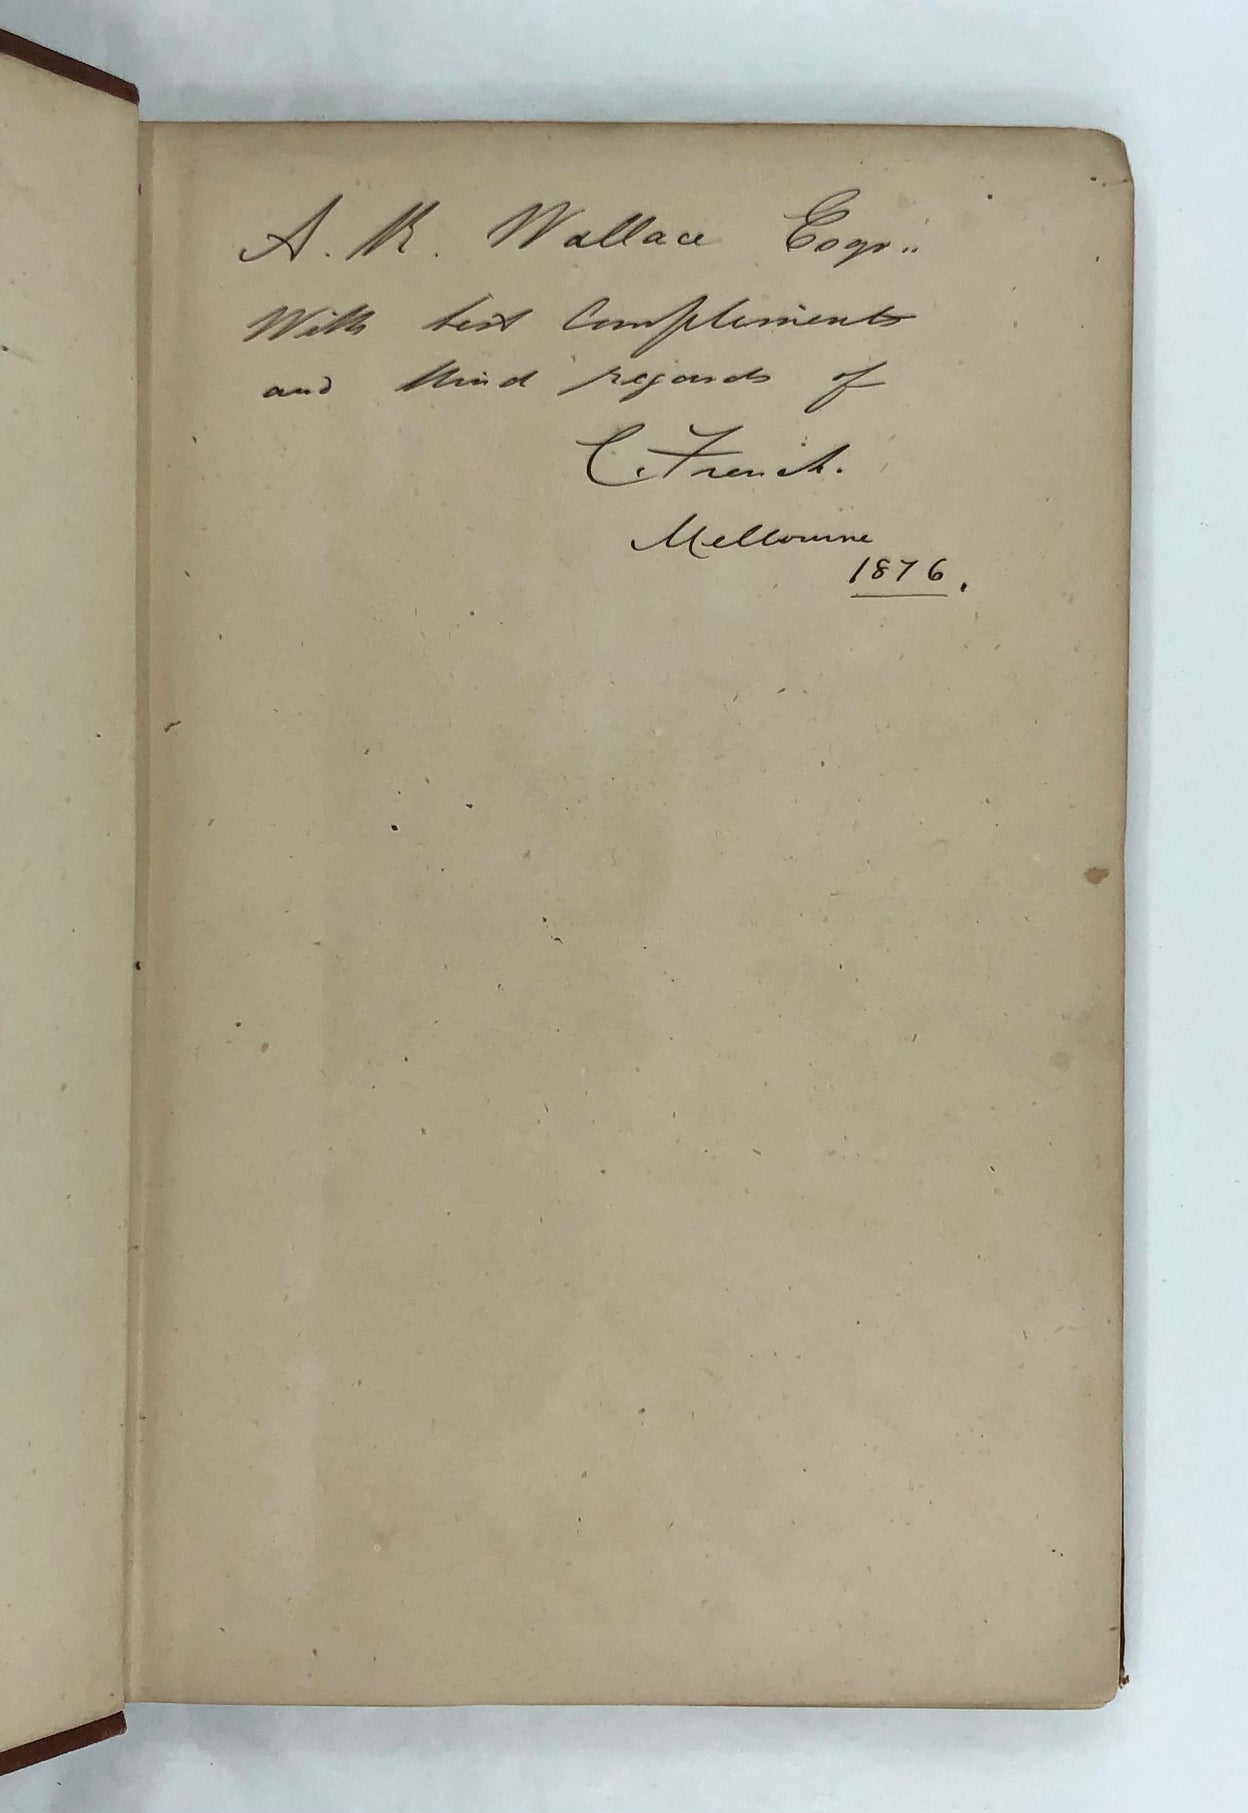 A. R. Wallace Esqr..
With best Compliments
and kind regards of
C. French.
Melbourne
1876.